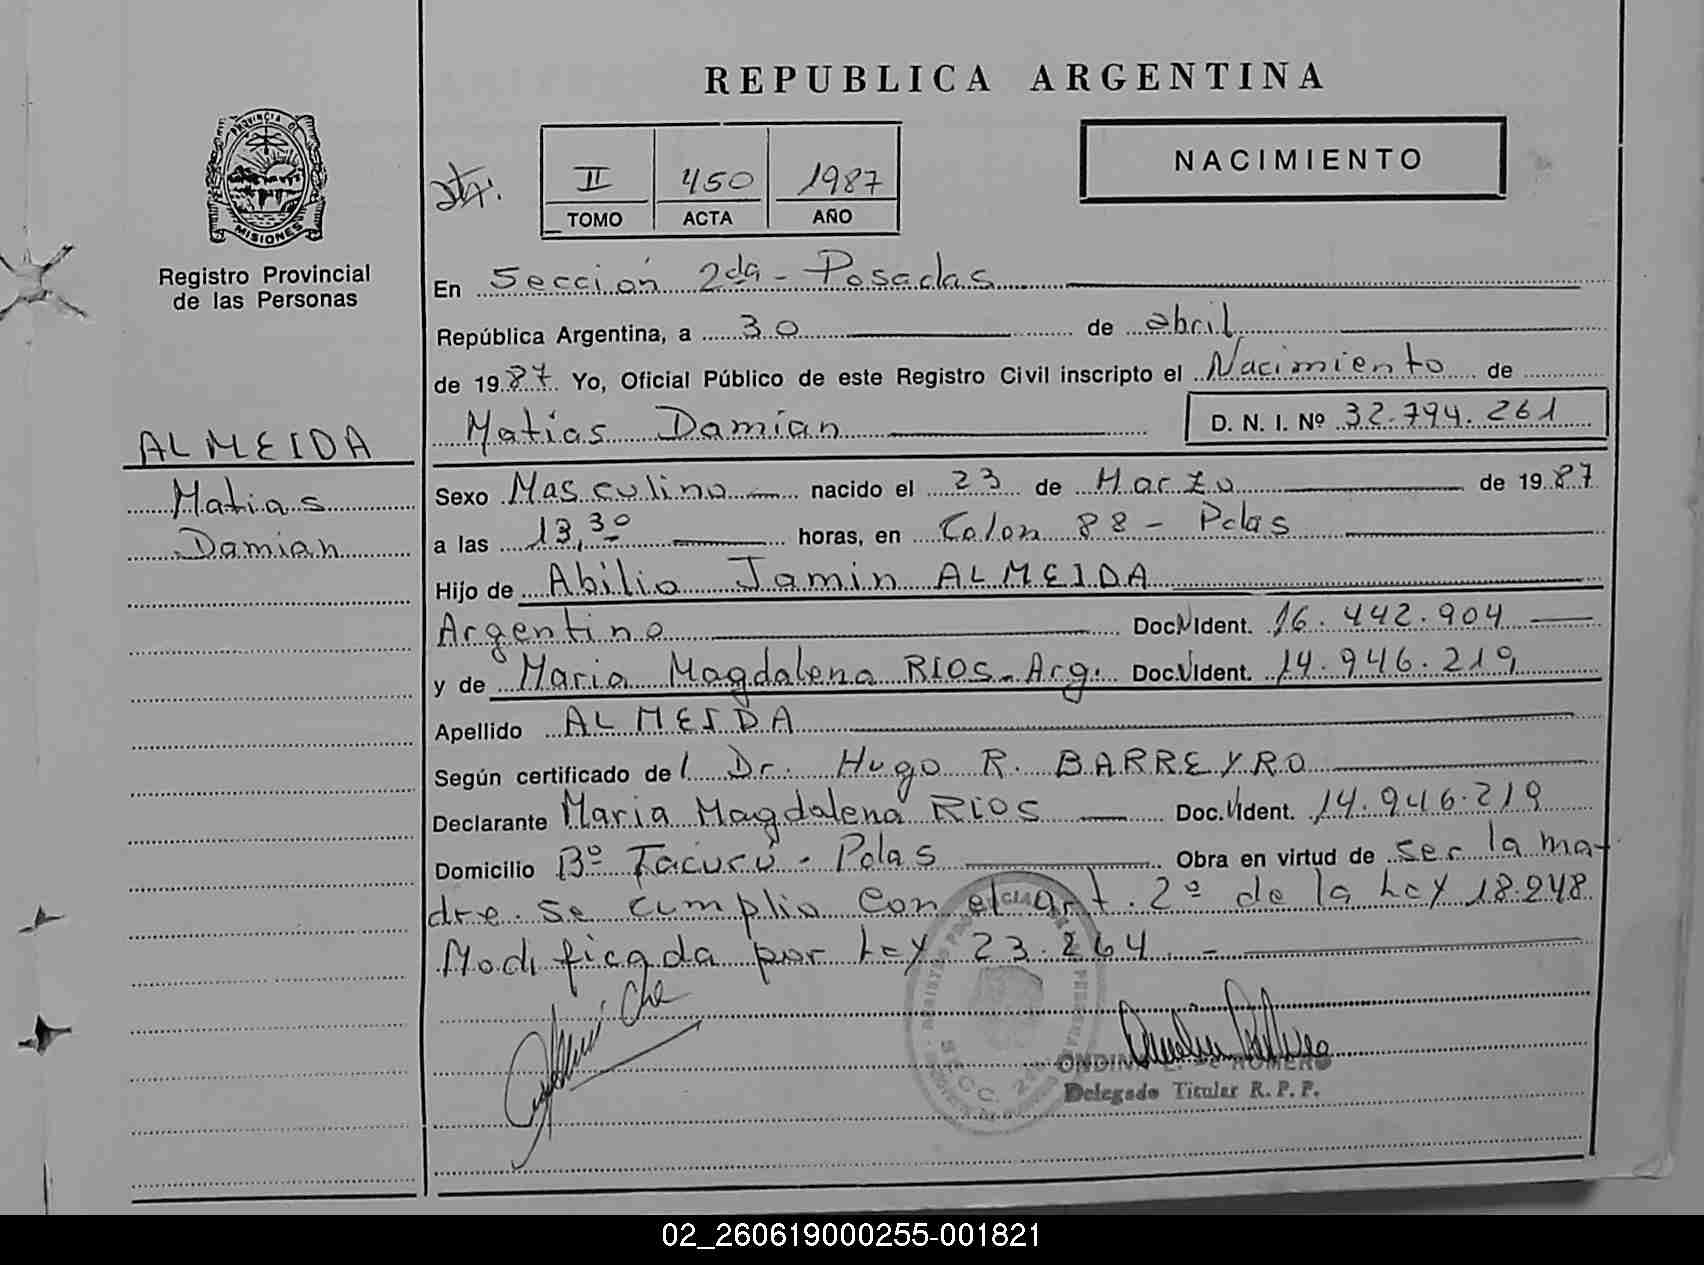 REPUBLICA ARGENTINA
PROVINCIA D
MISIONES
Registro Provincial
de las Personas
II 450 1987
TOMO ACTA AÑO
NACIMIENTO
En Sección 2da - Posadas
República Argentina, a 30 de abril
de 1987 Yo, Oficial Público de este Registro Civil inscripto el Nacimiento de
Matías Damián D. N. I. Nº 32.794.261
ALMEIDA
Matias
Damian
Sexo Masculino nacido el 23 de Marzo de 1987
a las 13,30 horas, en Colon 88 - Pdas
Hijo de Abilio Jamin ALMEIDA
Argentino Doc. Ident. 16.442.904
y de Maria Magdalena RIOS - Arg. Doc. Ident. 14.946.219
Apellido ALMEIDA
Según certificado del Dr. Hugo R. BARREYRO
Declarante Maria Magdalena RIOS Doc. Ident. 14.946.219
Domicilio Bº Tacurú - Pdas Obra en virtud de ser la ma-
dre. Se cumplio con el art. 2º de la Ley 18.248
Modificada por Ley 23.264. -
SECC. 2
ROMERO
Delegado Titular R. P. P.
02_260619000255-001821